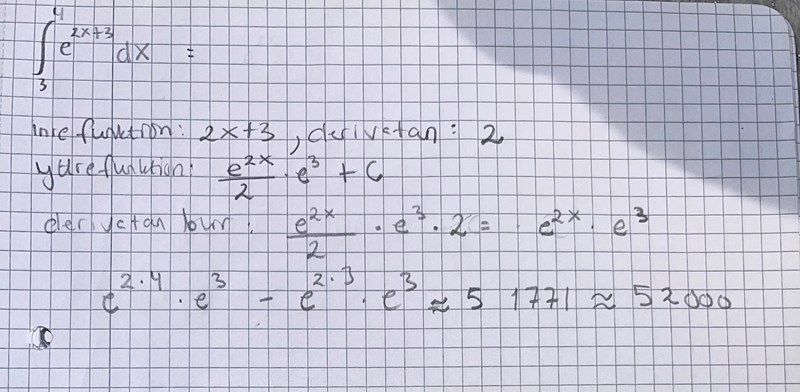 ∫₃⁴ e^(2x+3) dx =
inre funktion: 2x+3, derivatan: 2
yttre funktion: e^(2x)/2 · e^3 + C
derivatan blir: e^(2x)/2 · e^3 · 2 = e^(2x) · e^3
e^(2·4) · e^3 − e^(2·3) · e^3 ≈ 51771 ≈ 52000